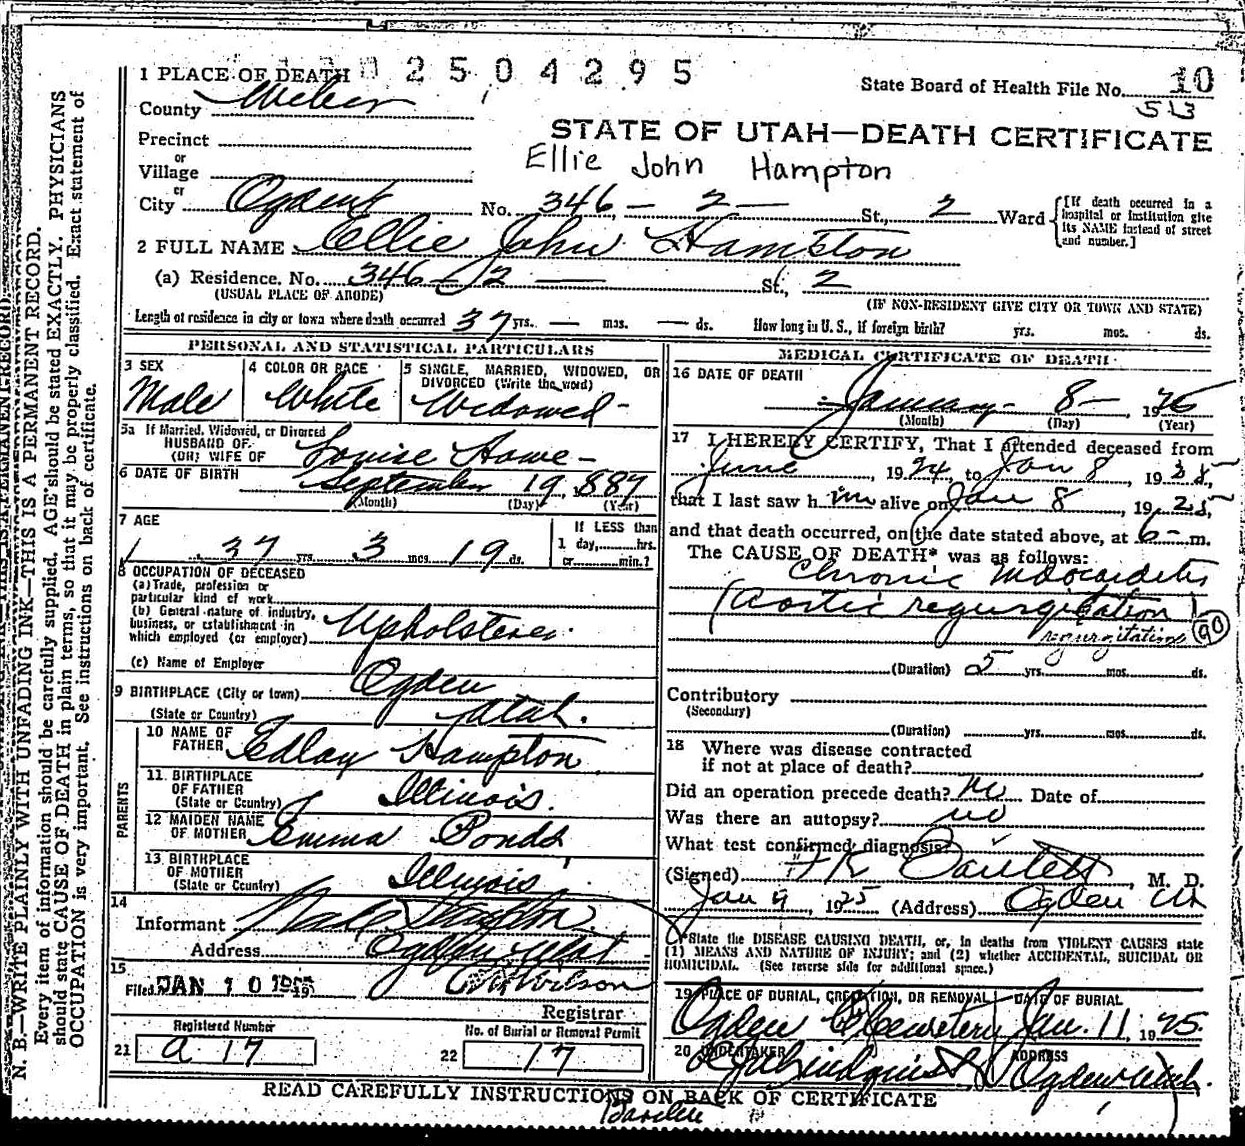 2 5 0 4 2 9 5
1 PLACE OF DEATH
State Board of Health File No. 10
513
County Weber
STATE OF UTAH—DEATH CERTIFICATE
Precinct
or
Village
Ellie John Hampton
or
City Ogden No. 346 - 2 - St., 2 Ward
[If death occurred in a hospital or institution give its NAME instead of street and number.]
2 FULL NAME Ellie John Hampton
(a) Residence. No. 346 - 2 — St., 2
(USUAL PLACE OF ABODE) (IF NON-RESIDENT GIVE CITY OR TOWN AND STATE)
Length of residence in city or town where death occurred 37 yrs. — mos. — ds. How long in U. S., if foreign birth? yrs. mos. ds.
PERSONAL AND STATISTICAL PARTICULARS
3 SEX
Male
4 COLOR OR RACE
White
5 SINGLE, MARRIED, WIDOWED, OR
DIVORCED (Write the word)
Widowed -
5a If Married, Widowed, or Divorced
HUSBAND OF
(OR) WIFE OF Louise Howe -
6 DATE OF BIRTH September 19, 1887
(Month) (Day) (Year)
7 AGE
37 yrs. 3 mos. 19 ds.
If LESS than
1 day, hrs.
or min.?
8 OCCUPATION OF DECEASED
(a) Trade, profession or
particular kind of work
(b) General nature of industry,
business, or establishment in
which employed (or employer) Upholsterer
(c) Name of Employer
9 BIRTHPLACE (City or town) Ogden
(State or Country) Utah.
PARENTS
10 NAME OF
FATHER Hampton
11 BIRTHPLACE
OF FATHER
(State or Country) Illinois.
12 MAIDEN NAME
OF MOTHER Emma Ponds
13 BIRTHPLACE
OF MOTHER
(State or Country) Illinois
14
Informant Hampton
Address Ogden Utah
15
Filed JAN 10 1925 Wilson
Registrar
Registered Number
21 a 17
No. of Burial or Removal Permit
22 17
MEDICAL CERTIFICATE OF DEATH
16 DATE OF DEATH
January 8 - , 1925
(Month) (Day) (Year)
17 I HEREBY CERTIFY, That I attended deceased from
June , 1924, to Jan 8 , 1925,
that I last saw him alive on Jan 8 , 1925,
and that death occurred, on the date stated above, at 6 - m.
The CAUSE OF DEATH* was as follows:
Chronic Endocarditis
(Aortic regurgitation)
regurgitation 90
(Duration) 5 yrs. mos. ds.
Contributory
(Secondary)
(Duration) yrs. mos. ds.
18 Where was disease contracted
if not at place of death?
Did an operation precede death? No Date of
Was there an autopsy? no
What test confirmed diagnosis?
(Signed) Bartlett , M. D.
Jan 9 , 1925 (Address) Ogden Ut
(*State the DISEASE CAUSING DEATH, or, in deaths from VIOLENT CAUSES state
(1) MEANS AND NATURE OF INJURY; and (2) whether ACCIDENTAL, SUICIDAL OR
HOMICIDAL. (See reverse side for additional space.)
19 PLACE OF BURIAL, CREMATION, OR REMOVAL DATE OF BURIAL
Ogden Cemetery Jan. 11, 1925.
20 UNDERTAKER ADDRESS
Lindquist Ogden Utah.
READ CAREFULLY INSTRUCTIONS ON BACK OF CERTIFICATE
N. B.—WRITE PLAINLY WITH UNFADING INK—THIS IS A PERMANENT RECORD.
Every item of information should be carefully supplied. AGE should be stated EXACTLY. PHYSICIANS
should state CAUSE OF DEATH in plain terms, so that it may be properly classified. Exact statement of
OCCUPATION is very important. See instructions on back of certificate.